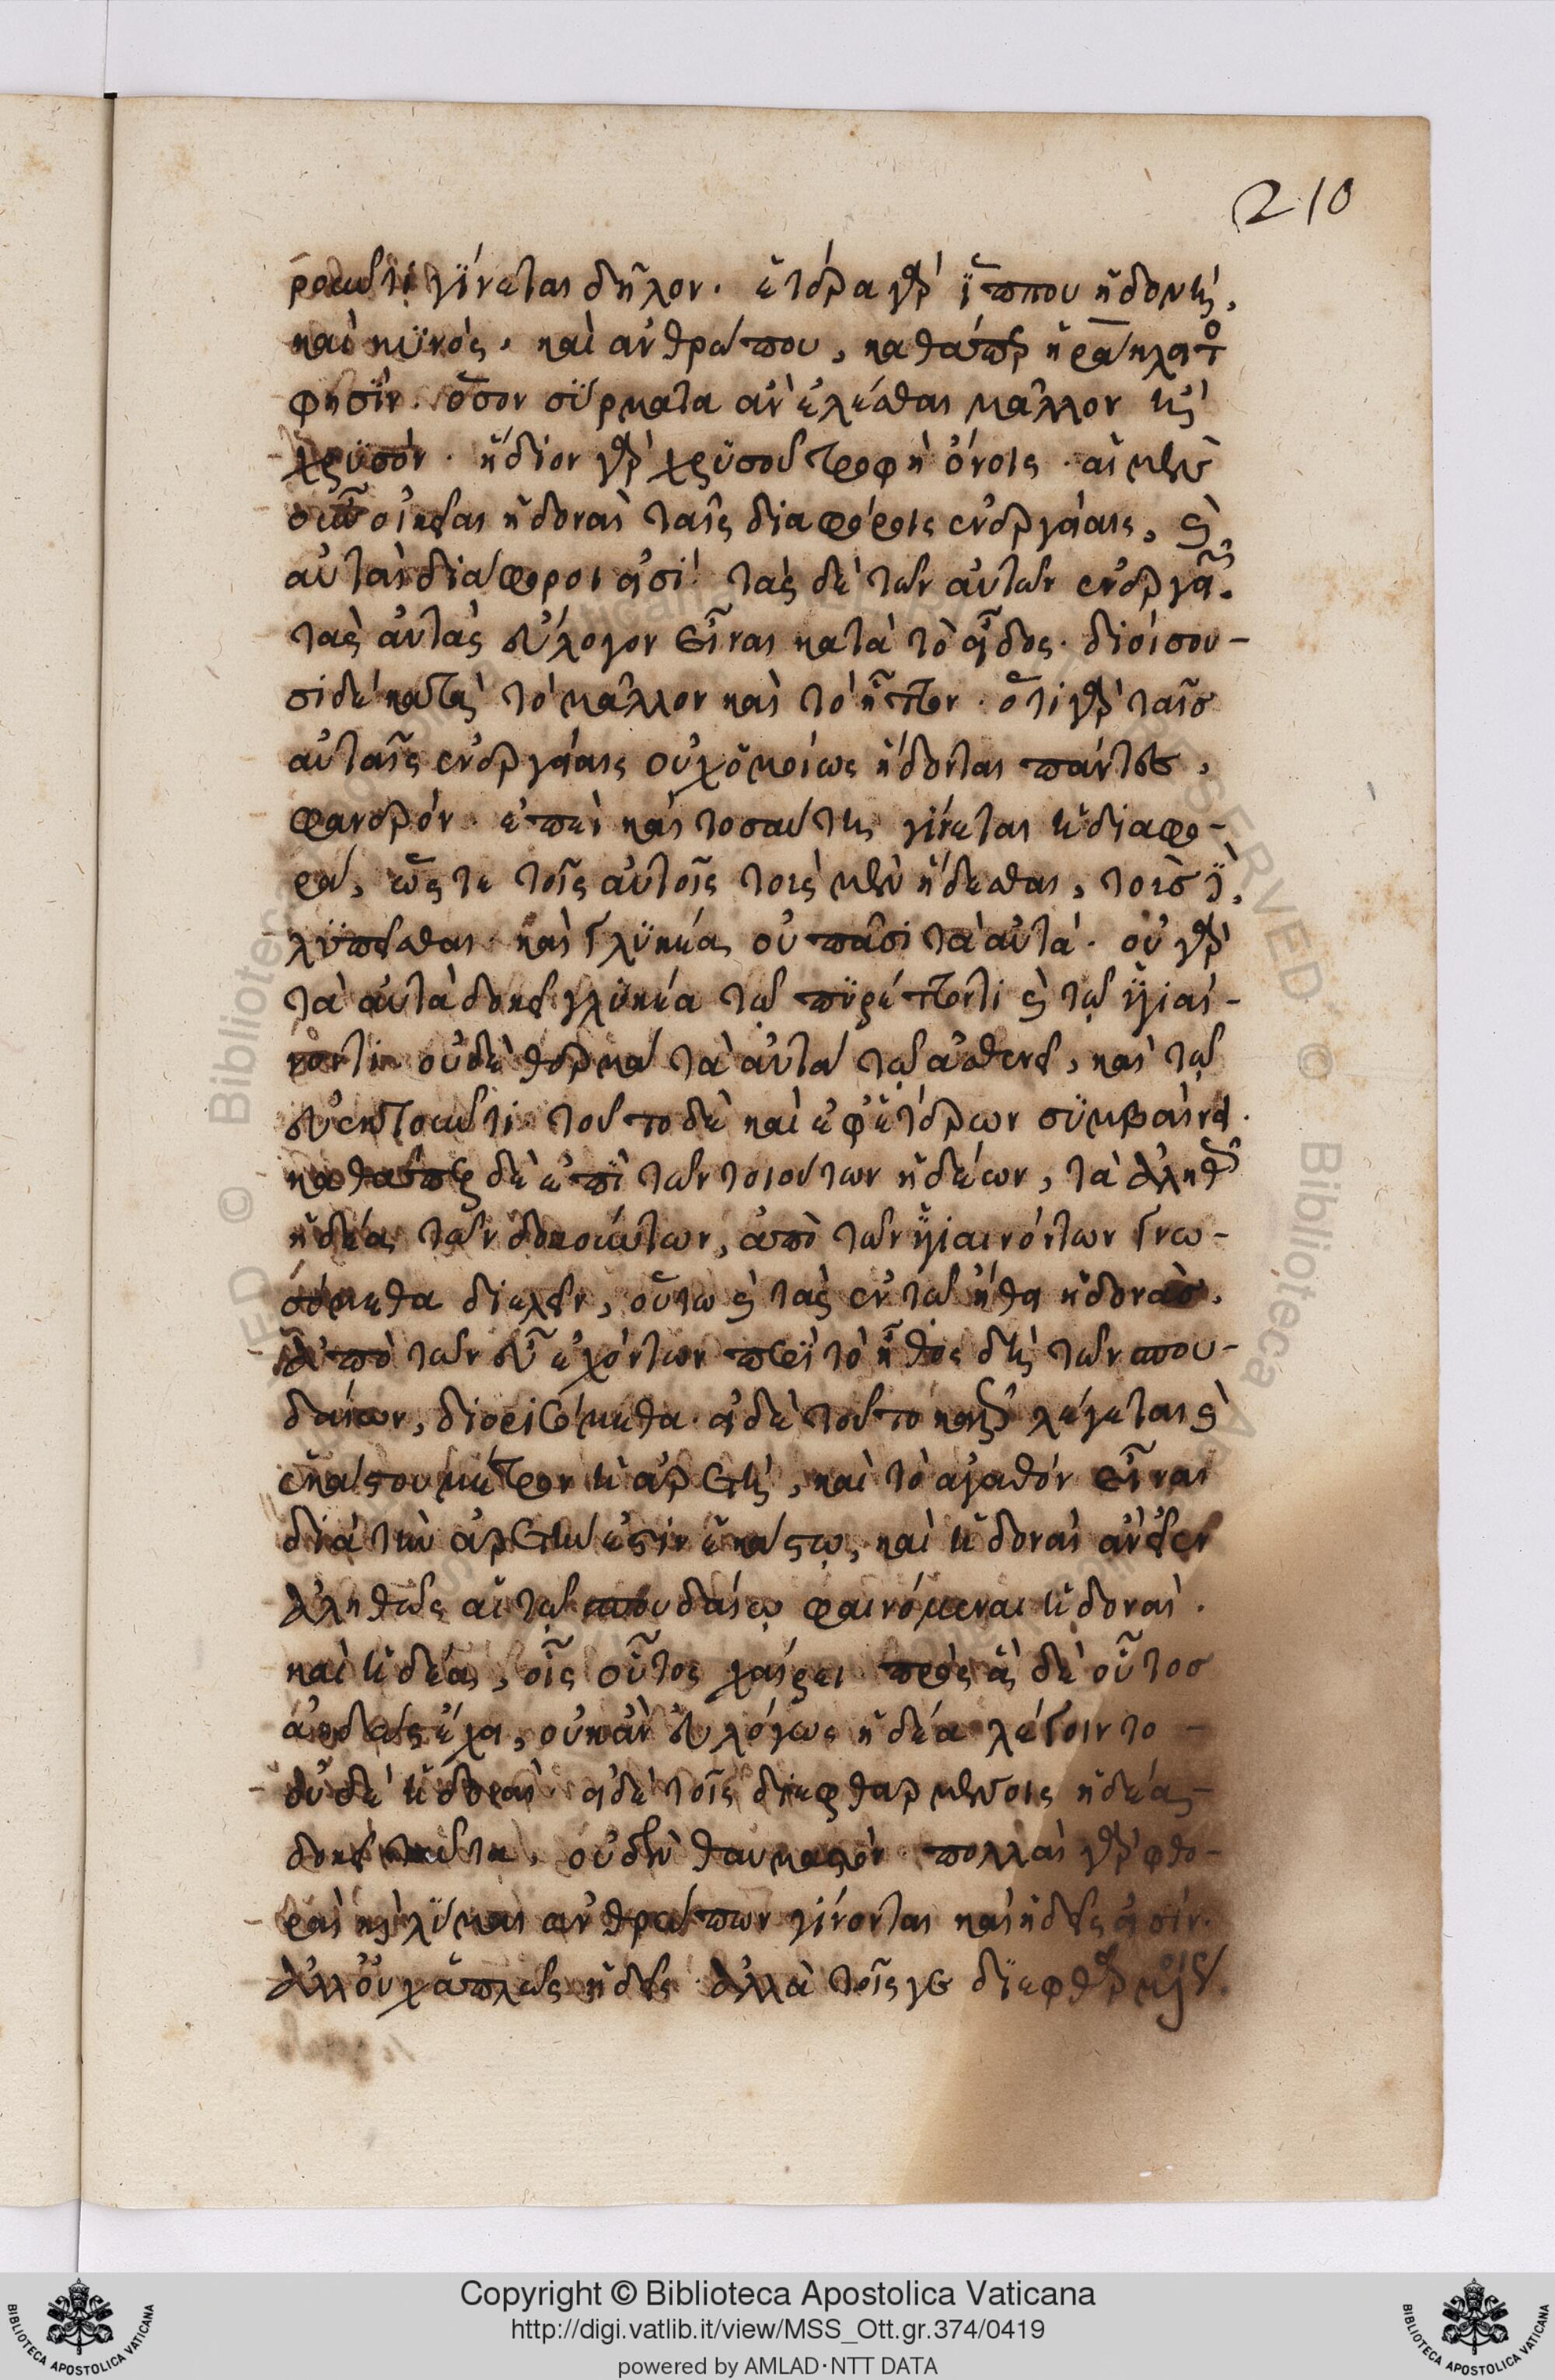 210
ροῦντι γίνεται δῆλον. ἑτέρα γὰρ ἵππου ἡδονὴ,
καὶ κυνὸς, καὶ ἀνθρώπου, καθάπερ ἡράκλειτος
φησὶν. ὄνον σύρματα ἂν ἑλέσθαι μᾶλλον ἢ
χρυσόν. ἥδιον γὰρ χρυσοῦ τροφὴ ὄνοις. αἱ μὲν
οὖν οἰκεῖαι ἡδοναὶ ταῖς διαφόροις ἐνεργείαις, καὶ
αὐταὶ διάφοροι εἰσί. τὰς δὲ τῶν αὐτῶν ἐνεργειῶν
τὰς αὐτὰς εὔλογον εἶναι κατὰ τὸ εἶδος. διοίσου-
σι δὲ κατὰ τὸ μᾶλλον καὶ τὸ ἧττον. ὅτι γὰρ ταῖς
αὐταῖς ἐνεργείαις οὐχ ὁμοίως ἥδονται πάντες,
φανερόν. ἐπεὶ καὶ τοσαύτη γίνεται ἡ διαφο-
ρά, ὥς τε τοῖς αὐτοῖς τοὺς μὲν ἥδεσθαι, τοὺς
λυπεῖσθαι. καὶ γλυκέα οὐ πᾶσι τὰ αὐτά. οὐ γὰρ
τὰ αὐτὰ δοκεῖ γλυκέα τῷ πυρέττοντι καὶ τῷ ὑγιαί-
νοντι. οὐδὲ θερμὰ τὰ αὐτὰ τῷ ἀσθενεῖ, καὶ τῷ
εὐεκτοῦντι. τοῦτο δὲ καὶ ἐφ' ἑτέρων συμβαίνει.
καθάπερ δὲ ἐπὶ τῶν τοιούτων ἡδέων, τὰ ἀληθῶς
ἡδέα τῶν δοκούντων, ἀπὸ τῶν ὑγιαινόντων γνω-
σόμεθα διελεῖν, οὕτω καὶ τὰς ἐν τῷ ἤθει ἡδονὰς,
ἀπὸ τῶν εὖ ἐχόντων περὶ τὸ ἦθος δὴ τῶν σπου-
δαίων, διορισόμεθα. εἰ δὲ τοῦτο καλῶς λέγεται καὶ
ἑκάστου μέτρον ἡ ἀρετὴ, καὶ τὸ ἀγαθόν εἶναι
διὰ τὴν ἀρετὴν ἐστὶν ἑκάστῳ, καὶ ἡδοναὶ ἂν εἶεν
ἀληθῶς αἱ τῷ σπουδαίῳ φαινόμεναι ἡδοναί.
καὶ ἡδέα, οἷς οὗτος χαίρει. πρὸς ἃ δὲ οὗτος
ἀηδῶς ἔχει, οὐκ ἂν εὐλόγως ἡδέα λέγοιντο
οὐδὲ ἡδοναί. εἰ δὲ τοῖς διεφθαρμένοις ἡδέα
δοκεῖ ταῦτα, οὐδὲν θαυμαστόν. πολλαὶ γὰρ φθο-
ραὶ καὶ λύμαι ἀνθρώπων γίνονται καὶ ἡδεῖς εἰσίν.
ἀλλ' οὐχ ἁπλῶς ἡδεῖς. ἀλλὰ τοῖς γε διεφθαρμένοις.
Copyright © Biblioteca Apostolica Vaticana
http://digi.vatlib.it/view/MSS_Ott.gr.374/0419
powered by AMLAD·NTT DATA
BIBLIOTECA APOSTOLICA VATICANA
BIBLIOTECA APOSTOLICA VATICANA